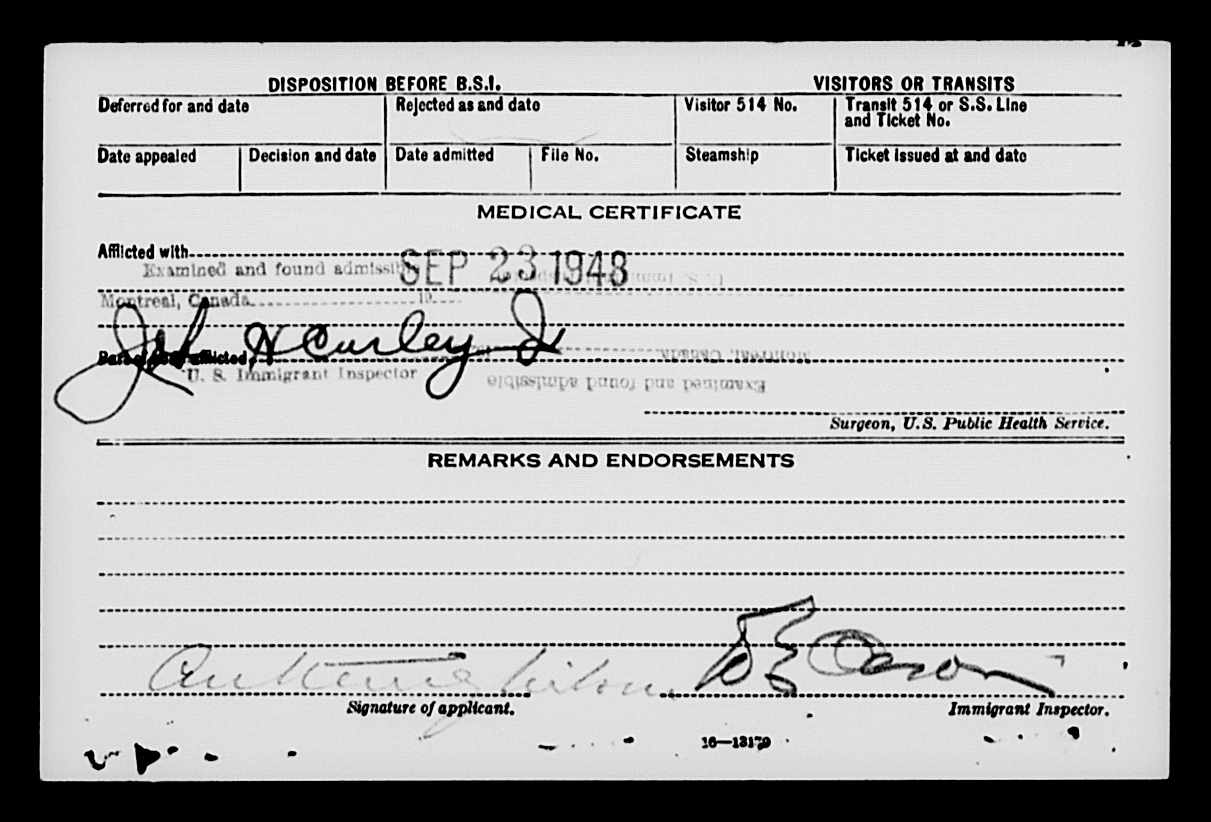 DISPOSITION BEFORE B.S.I. VISITORS OR TRANSITS
Deferred for and date Rejected as and date Visitor 514 No. Transit 514 or S.S. Line and Ticket No.
Date appealed Decision and date Date admitted File No. Steamship Ticket issued at and date
MEDICAL CERTIFICATE
Afflicted with
Examined and found admissible SEP 23 1948 U. S. Immigrant Inspector
Montreal, Canada 19
Joh H Curley Jr
Part of body afflicted Montreal, Canada
U. S. Immigrant Inspector Examined and found admissible
Surgeon, U.S. Public Health Service.
REMARKS AND ENDORSEMENTS
Signature of applicant. Immigrant Inspector.
16—13179